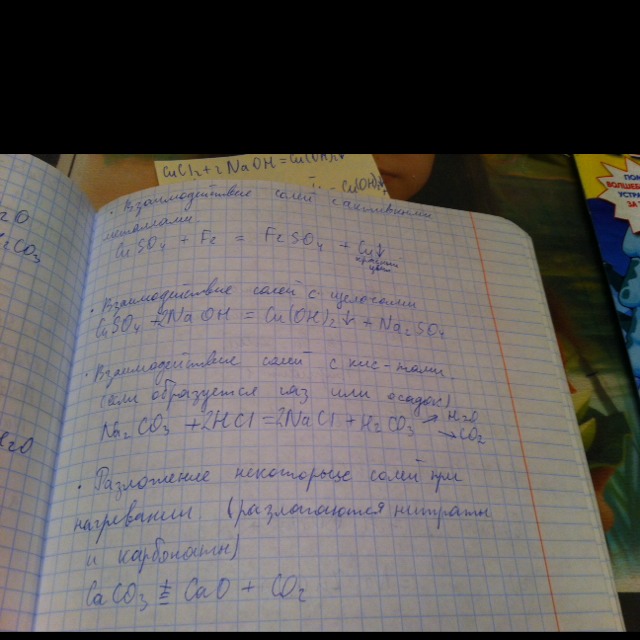 CuCl₂ + 2NaOH = Cu(OH)₂↓
Cu(OH)₂
ПО
ВОЛШЕБ
УСТР
ЗА
· Взаимодействие солей с активными
металлами
CuSO₄ + Fe = FeSO₄ + Cu↓
· Взаимодействие солей с щелочами
CuSO₄ + 2NaOH = Cu(OH)₂↓ + Na₂SO₄
· Взаимодействие солей с кис-тами
(если образуется газ или осадок)
Na₂CO₃ + 2HCl = 2NaCl + H₂CO₃ → H₂O
→ CO₂
· Разложение некоторых солей при
нагревании (разлагаются нитраты
и карбонаты)
CaCO₃ t= CaO + CO₂